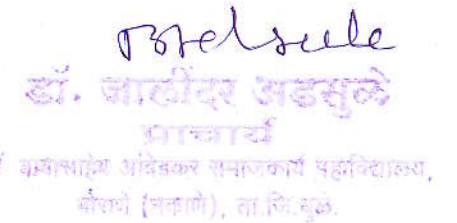 डॉ. जालींदर अडसुळे
प्राचार्य
बाबासाहेब आंबेडकर समाजकार्य महाविद्यालय,
ता.जि.धुळे.